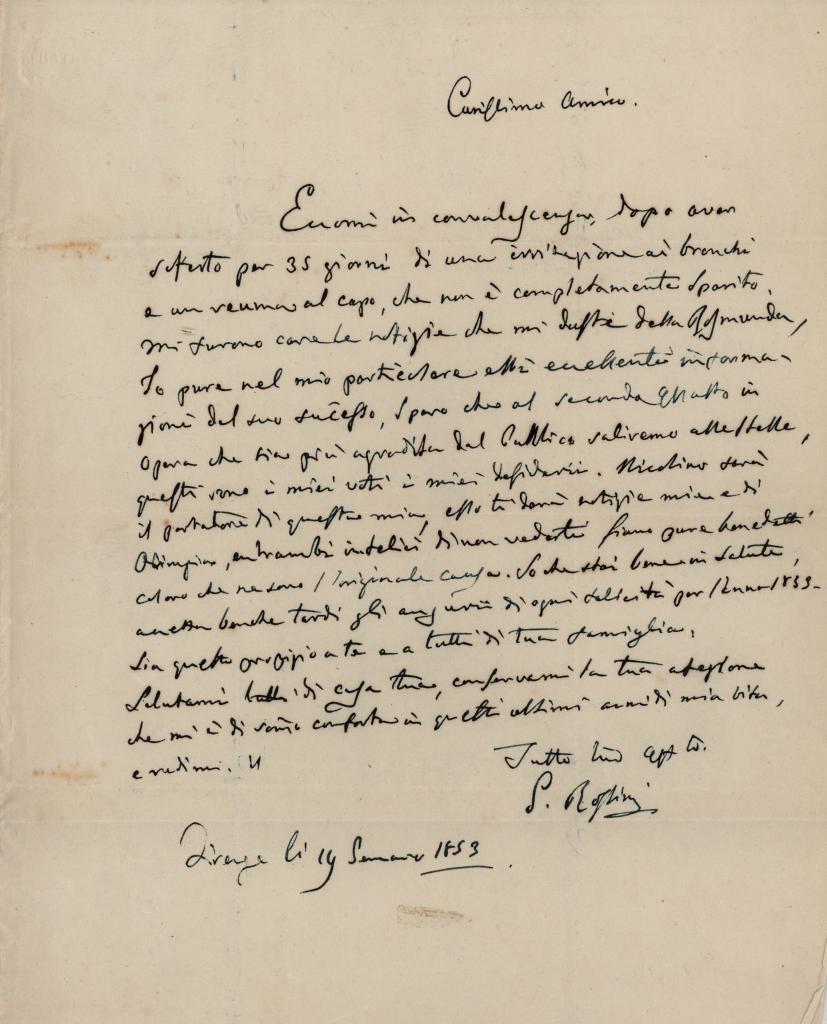 Carissimo Amico.
Eccomi in convalescenza, dopo aver
soferto per 35 giorni di una irritazione ai bronchi
e un reuma al capo, che non è completamente sparito.
mi furono care le notizie che mi daste della Rosmunda,
Io pure nel mio particolare ebbi eccellenti informa-
zioni del suo successo, spero che al secondo in
opera che sia più agradita dal Pubblico saliremo alle stelle,
questi sono i miei voti i miei desiderii. Nicolino sarà
il portatore di questa mia, esso ti darà notizie mie e di
Olimpia, entrambi infelici di non vederti siano pure benedetti
coloro che ne sono l'originale causa. So che stai bene in salute,
accetta benche tardi gli augurii di ogni felicità per l'Anno 1853-
Sia questo propizio a te e a tutti di tua famiglia.
Salutami tutti di casa tua, conservami la tua afezione
che mi è di sommo conforto in questi ultimi anni di mia vita,
e credimi. il
Tutto tuo affto.
G. Rossini
Firenze li 19 Gennaio 1853.